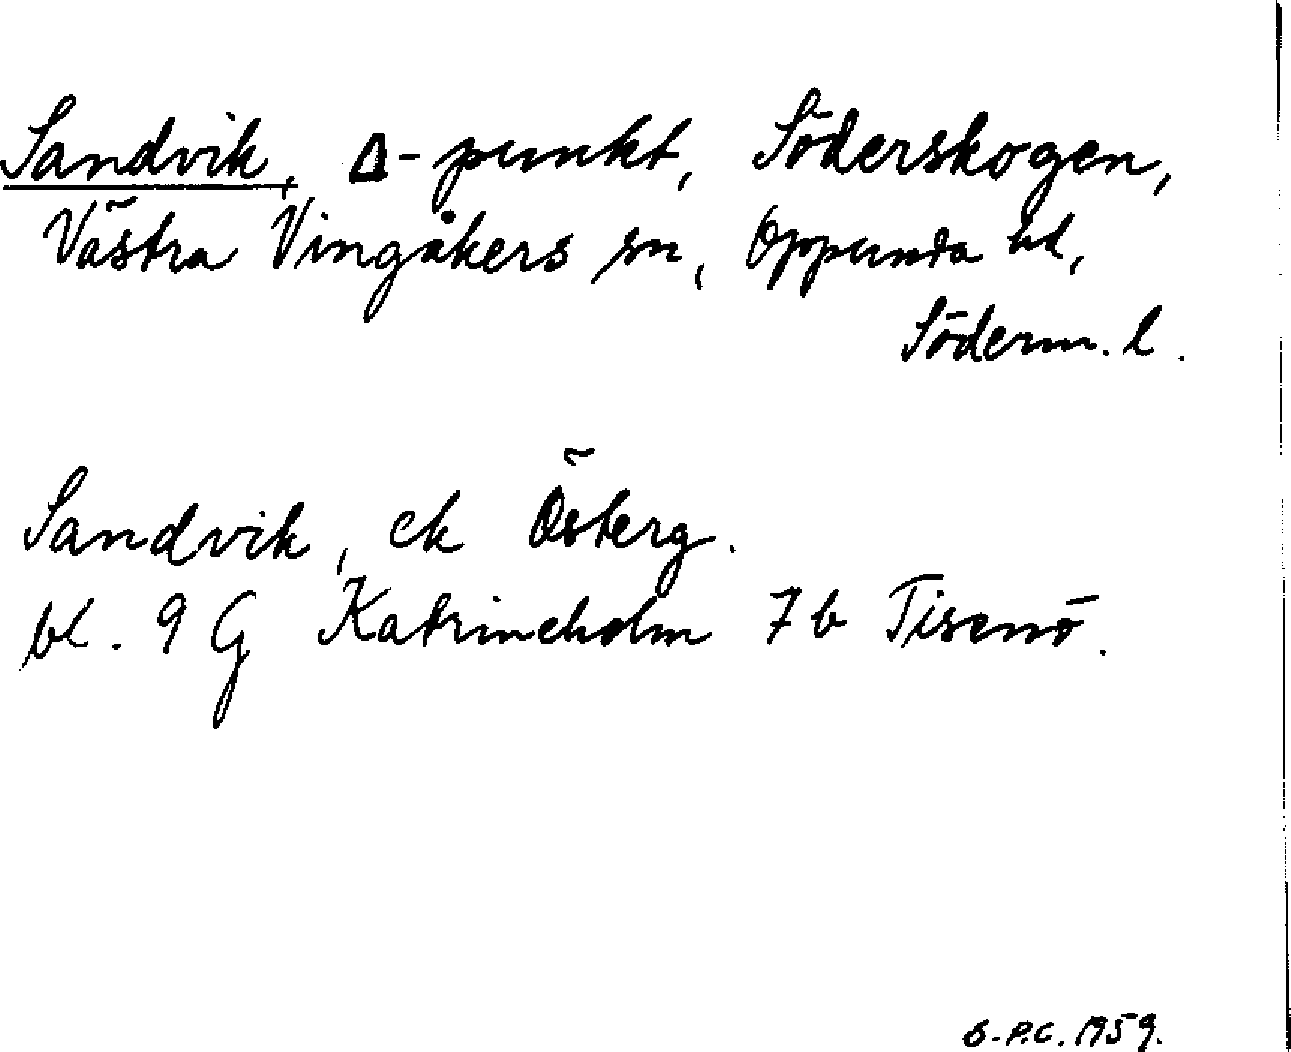 Sandvik, Δ-punkt, Söderskogen,
Västra Vingåkers sn, Oppunda hd,
Söderm. l.
Sandvik, ek Österg.
bl. 9 G Katrineholm 7b Tisenö.
G.P.C. 1959.